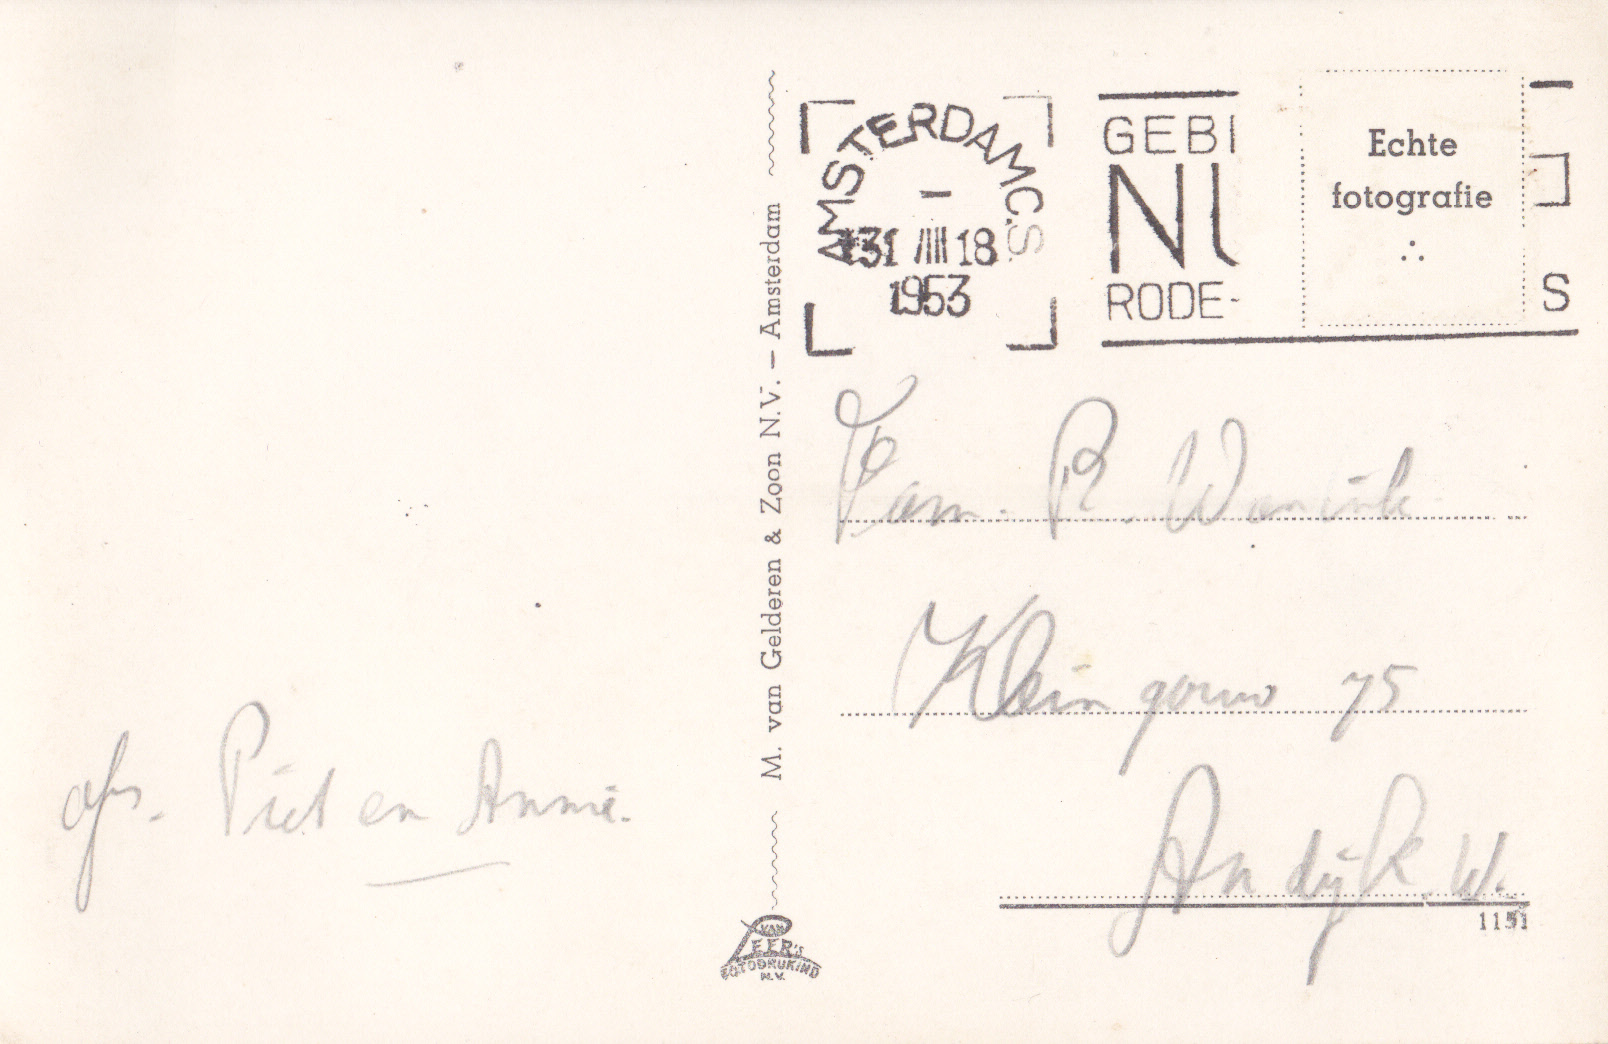 afs. Piet en Annie.
M. van Gelderen & Zoon N.V. — Amsterdam
VAN
LEER'S
FOTODRUKIND
N.V.
AMSTERDAM C.S.
31 VIII 18
1953
GEBI
NI
RODE-
S
Echte
fotografie
Fam. R. Wanink
Kleingouw 75
Andijk. W.
1151